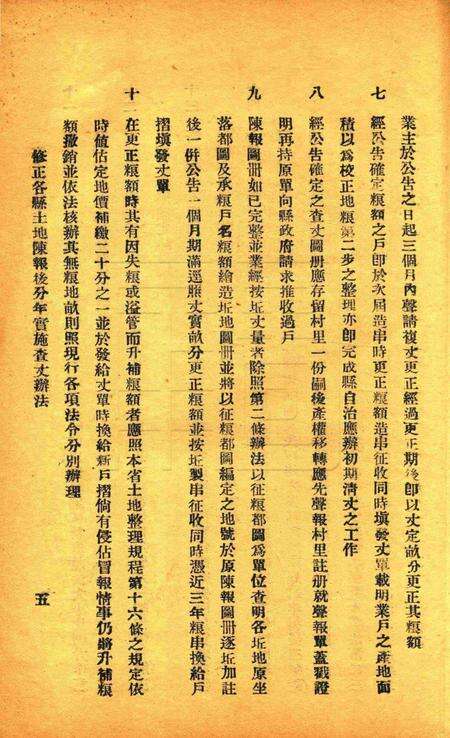 業主於公告之日起三個月內聲請複丈更正經過更正期後卽以丈定畝分更正其糧額
七　經公告確定糧額之戶卽於次屆造串時更正糧額造串征收同時塡發丈單載明業戶之產地面
積以爲校正地糧第二步之整理亦卽完成縣自治應辦初期淸丈之工作
八　經公告確定之查丈圖册應存留村里一份嗣後產權移轉應先聲報村里註册就聲報單蓋戳證
明再持原單向縣政府請求推收過戶
九　陳報圖冊如已完整並業經按坵丈量者除照第二條辦法以征糧都圖爲單位查明各坵地原坐
落都圖及承糧戶名糧額繪造坵地圖冊並將以征糧都圖編定之地號於原陳報圖冊逐坵加註
後一併公告一個月期滿逕照丈實畝分更正糧額並按坵製串征收同時憑近三年糧串換給戶
摺塡發丈單
十　在更正糧額時其有因失糧或溢管而升補糧額者應照本省土地整理規程第十六條之規定依
時値估定地價補繳二十分之一並於發給丈單時換給新戶摺倘有侵佔冒報情事仍將升補糧
額撤銷並依法核辦其無糧地畝則照現行各項法令分別辦理
修正各縣土地陳報後分年實施查丈辦法
五